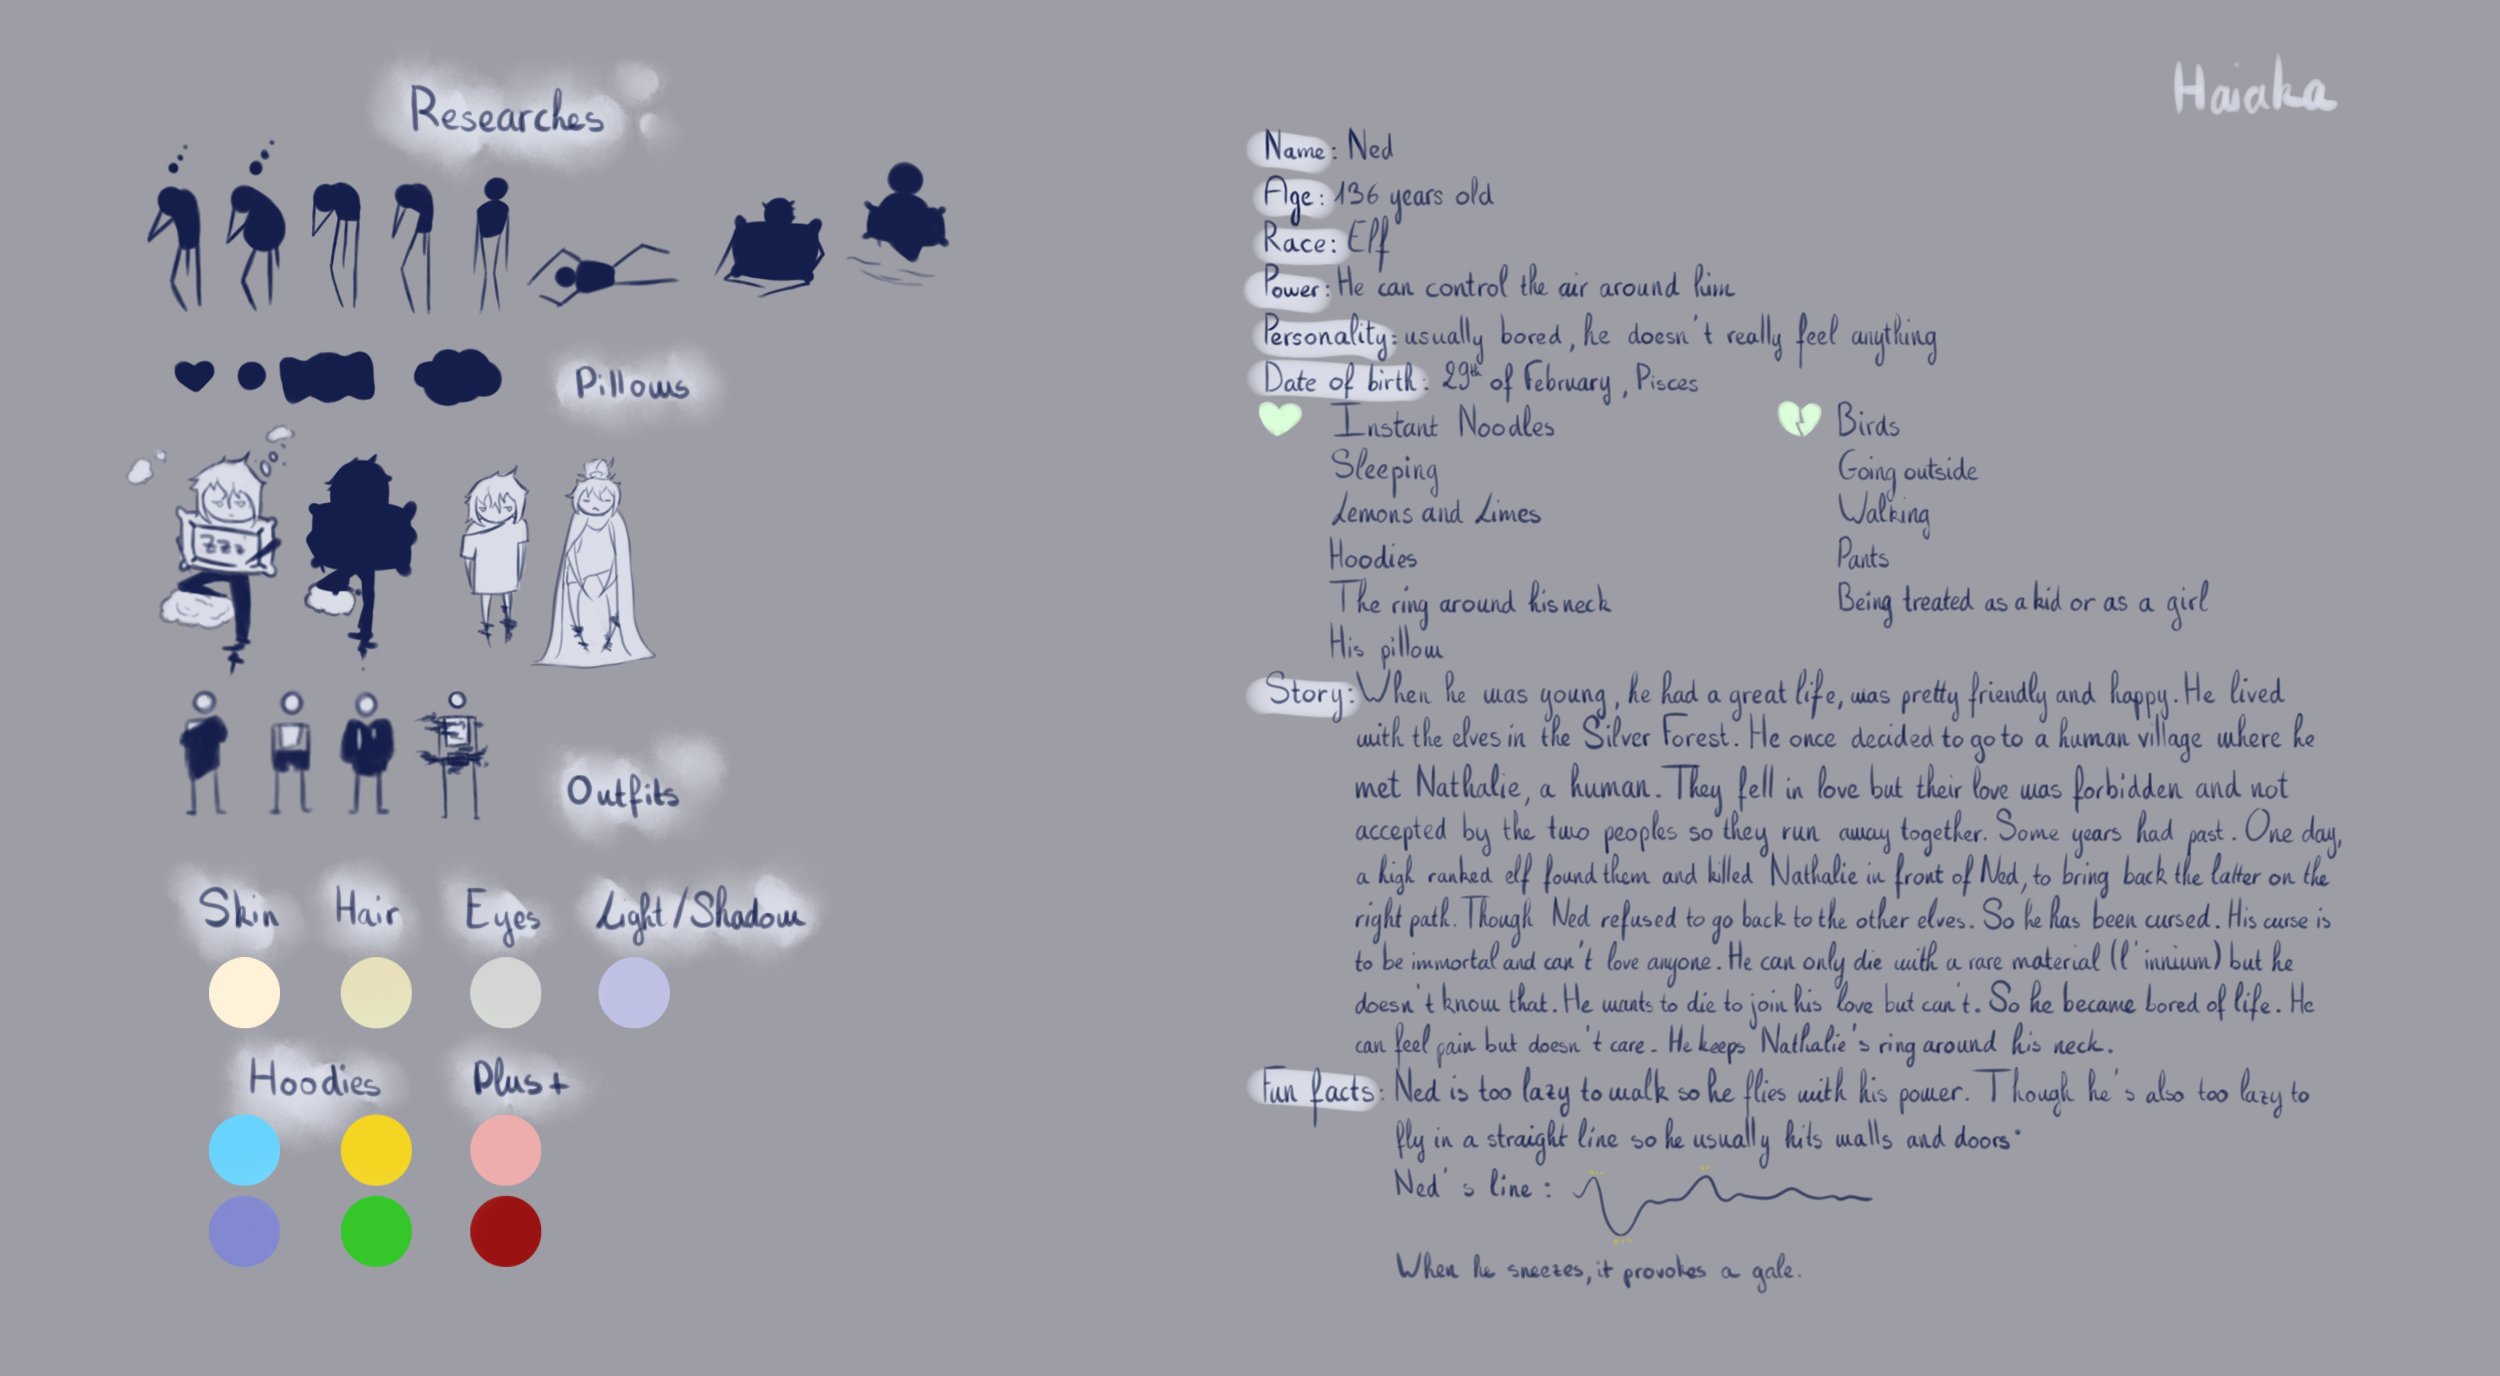 Researches
Pillows
Zzz
Outfits
Skin Hair Eyes Light/Shadow
Hoodies Plus+
Haiaka
Name: Ned
Age: 136 years old
Race: Elf
Power: He can control the air around him
Personality: usually bored, he doesn't really feel anything
Date of birth: 29th of February, Pisces
Instant Noodles
Sleeping
Lemons and Limes
Hoodies
The ring around his neck
His pillow
Birds
Going outside
Walking
Pants
Being treated as a kid or as a girl
Story: When he was young, he had a great life, was pretty friendly and happy. He lived
with the elves in the Silver Forest. He once decided to go to a human village where he
met Nathalie, a human. They fell in love but their love was forbidden and not
accepted by the two peoples so they run away together. Some years had past. One day,
a high ranked elf found them and killed Nathalie in front of Ned, to bring back the latter on the
right path. Though Ned refused to go back to the other elves. So he has been cursed. His curse is
to be immortal and can't love anyone. He can only die with a rare material (l'innium) but he
doesn't know that. He wants to die to join his love but can't. So he became bored of life. He
can feel pain but doesn't care. He keeps Nathalie's ring around his neck.
Fun facts: Ned is too lazy to walk so he flies with his power. Though he's also too lazy to
fly in a straight line so he usually hits walls and doors.
Ned's line:
When he sneezes, it provokes a gale.